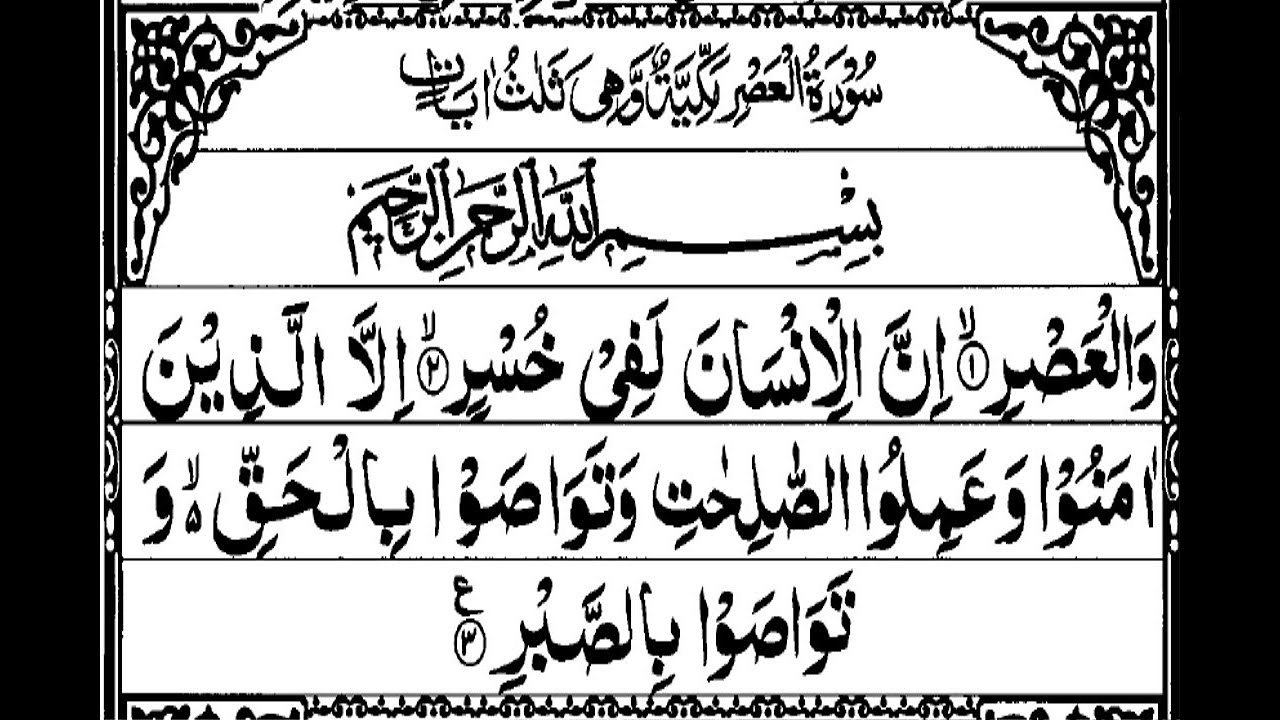 سُوْرَةُ الْعَصْرِ مَكِّيَّةٌ وَّهِىَ ثَلٰثُ اٰيَاتٍ
بِسْمِ اللّٰهِ الرَّحْمٰنِ الرَّحِيْمِ
وَالْعَصْرِ ۙ﴿۱﴾ اِنَّ الْاِنْسَانَ لَفِیْ خُسْرٍ ۙ﴿۲﴾ اِلَّا الَّذِيْنَ
اٰمَنُوْا وَعَمِلُوا الصّٰلِحٰتِ وَتَوَاصَوْا بِالْحَقِّ ۙ۵ وَ
تَوَاصَوْا بِالصَّبْرِ ﴿۳﴾ ع